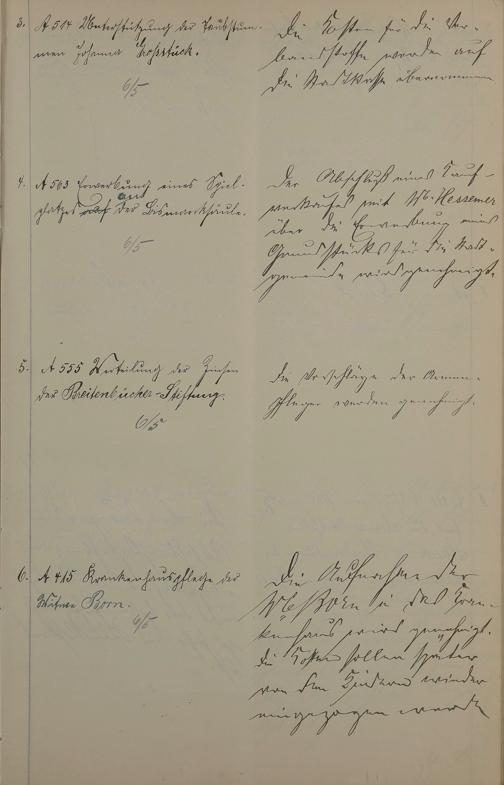 3. A 514 Unterstützung der Taubstum-
men Johanna Großstück.
6/5
Die Kosten für die Ver-
bandstoffe werden auf
die Stadtkasse übernommen
4. A 563 Erwerbung eines Spiel-
platzes auf an der Bismarcksäule.
6/5
Der Abschluß eines Kauf-
vertrages mit W. Hessemer
über die Erwerbung eines
Grundstücks für die Stadt-
gemeinde wird genehmigt.
5. A 555 Verteilung der Zinsen
der Breitenbücher-Stiftung.
6/5
Die Vorschläge der Armen-
pfleger werden genehmigt.
6. A 415 Krankenhauspflege der
Witwe Born.
6/5
Die Aufnahme der
Born in das Kran-
kenhaus wird genehmigt.
Die Kosten sollen später
von den Kindern wieder
eingezogen werden